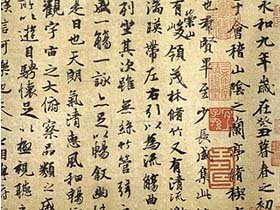 永和九年歲在癸丑暮春之初
于會稽山陰之蘭亭脩禊
也群賢畢至少長咸集此
有崇山峻領茂林脩竹又有清流
湍暎帶左右引以為流觴曲
列坐其次雖無絲竹管弦
盛一觴一詠亦足以暢敘幽
是日也天朗氣清惠風和暢
觀宇宙之大俯察品類之
所以遊目騁懷足以極視聽
信可樂也夫人之相與